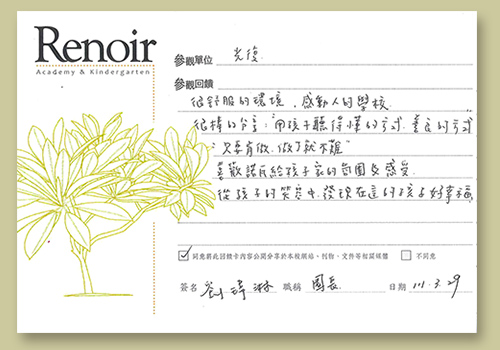 Renoir
Academy & Kindergarten
參觀單位 光復
參觀回饋
很舒服的環境，感動人的學校
很棒的分享："用孩子聽得懂的方式、善良的方式"
"只要有做，做了就不難"
喜歡諾瓦給孩子家的氛圍及感受
從孩子的笑容中，發現在這的孩子好幸福
同意將此回饋卡內容公開分享於本校網站、刊物、文件等相關媒體 不同意
簽名 劉瑋琳 職稱 園長 日期 111.3.29